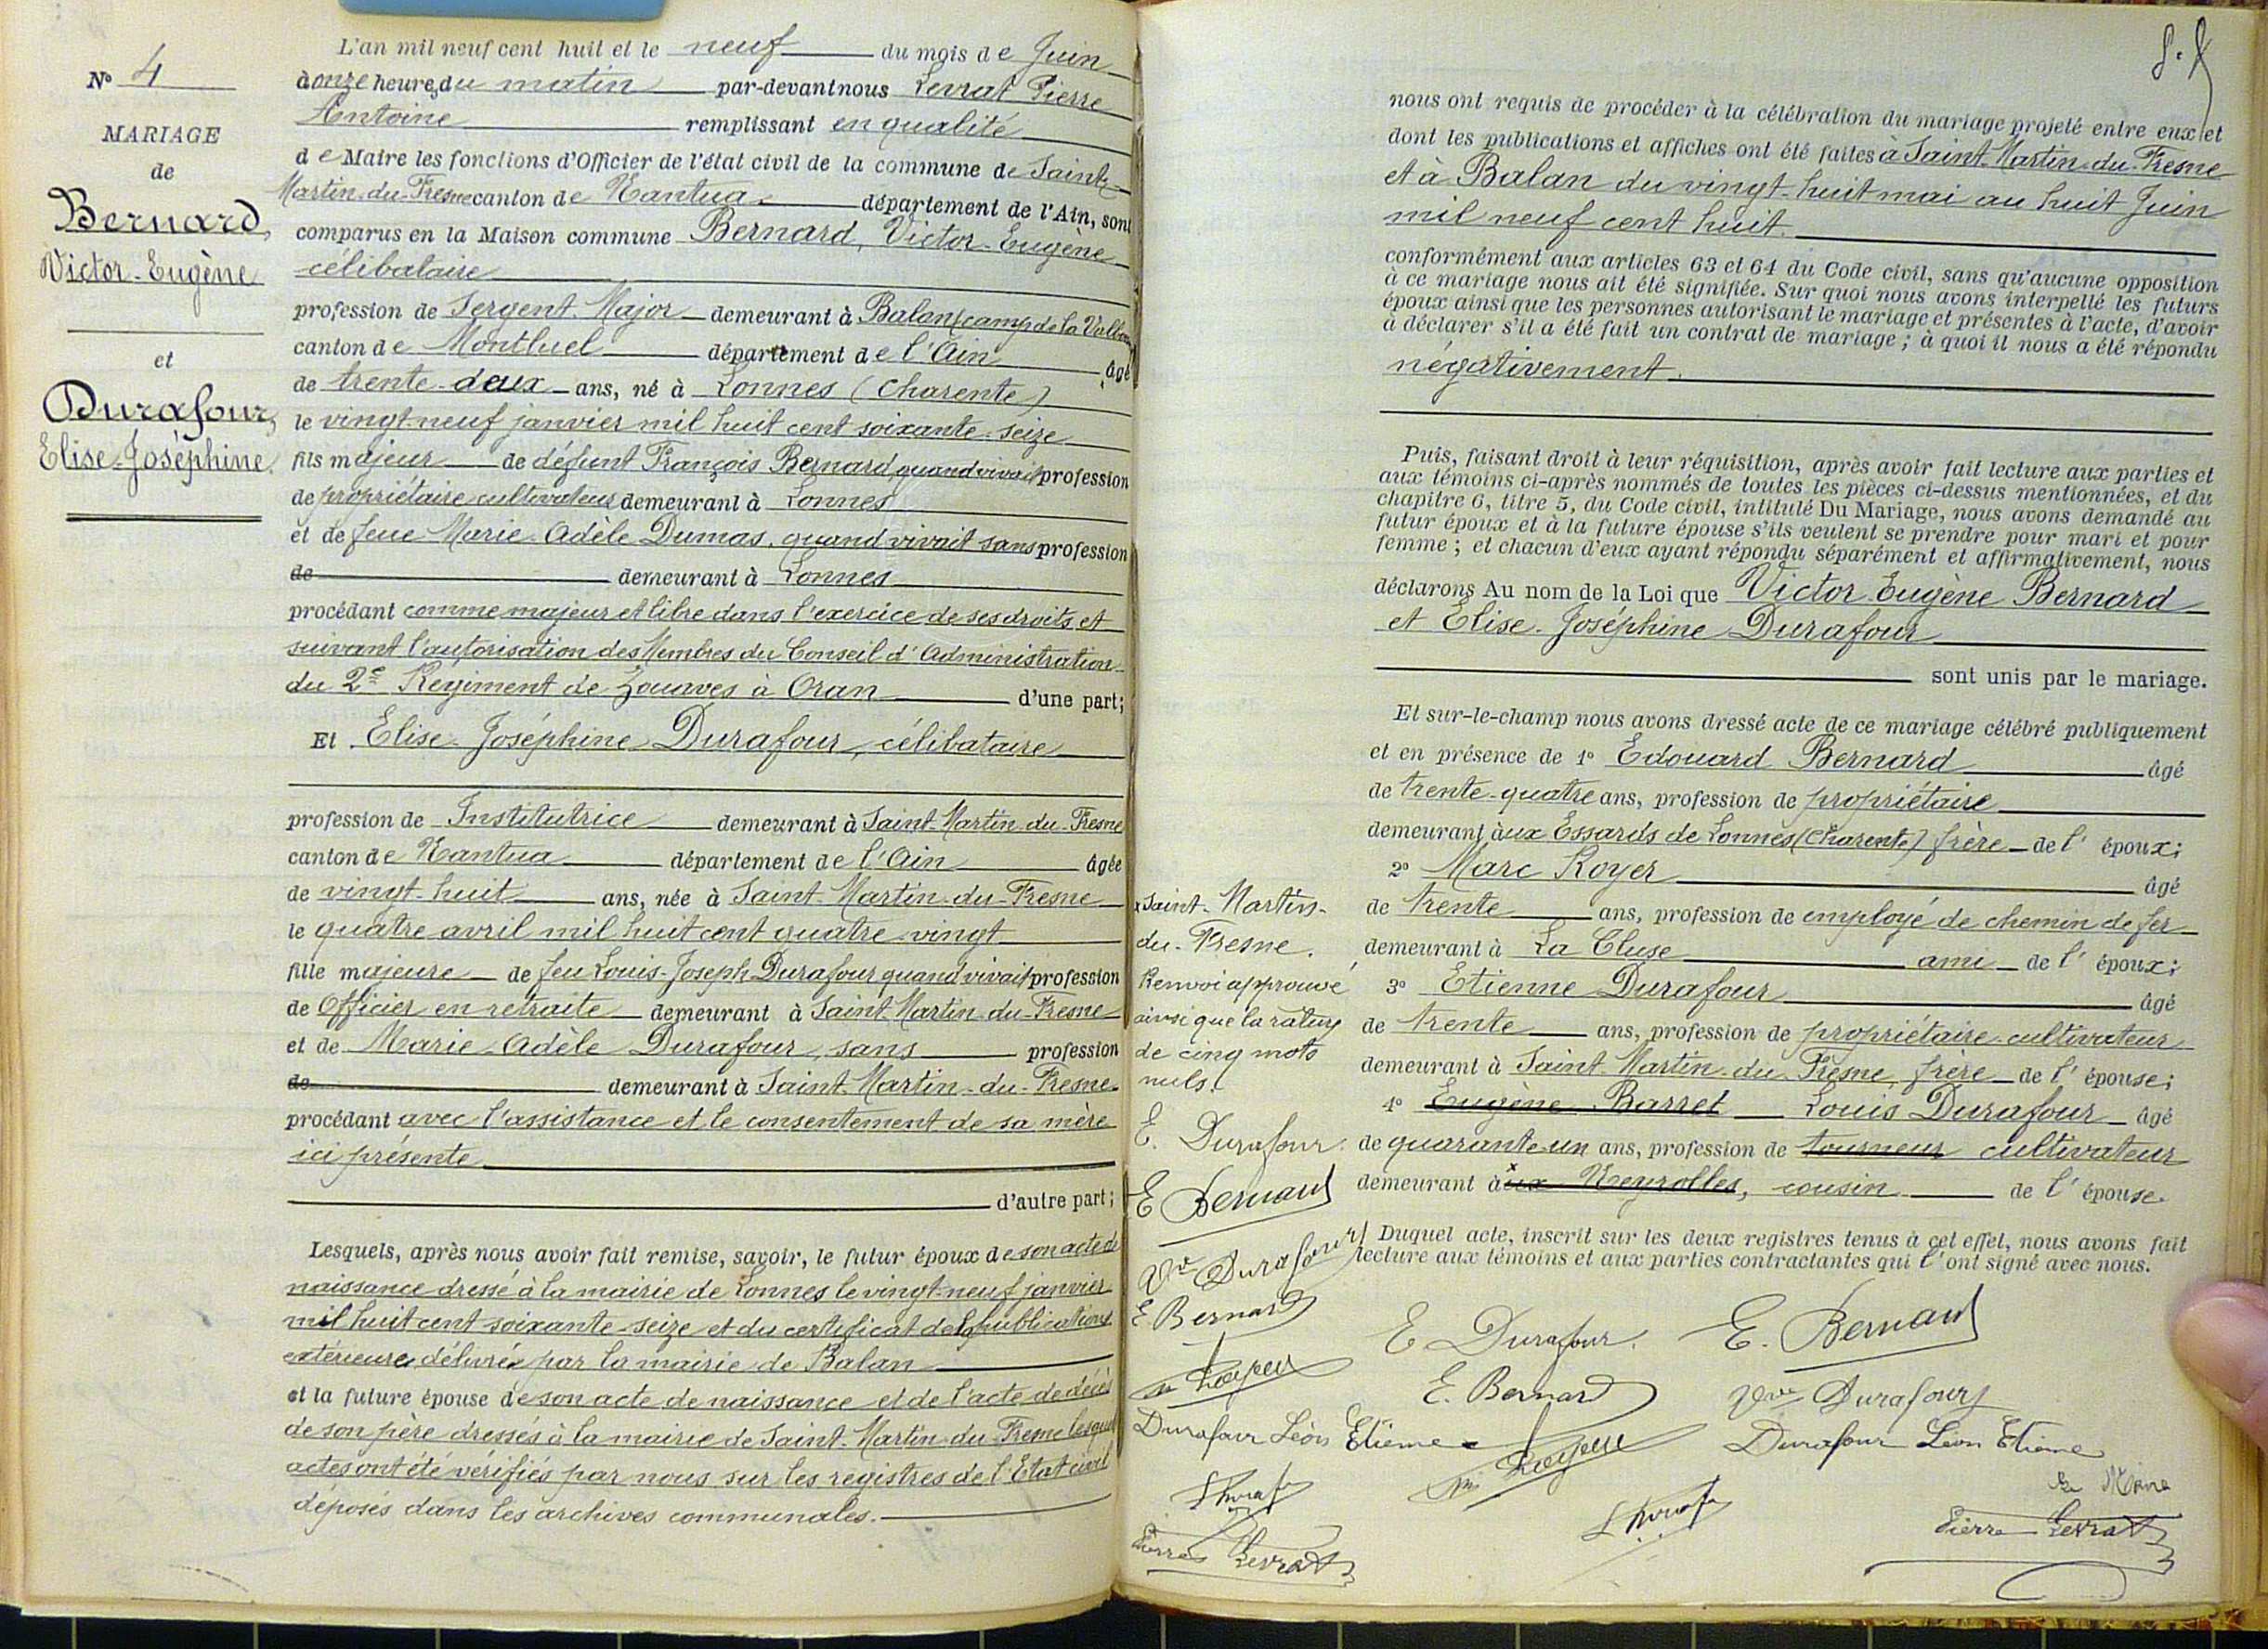 N° 4
MARIAGE
de
Bernard,
Victor-Eugène
et
Durafour,
Elise-Joséphine.
L'an mil neuf cent huit et le neuf du mois de Juin
à onze heures du matin par-devant nous Levrat Pierre
Antoine remplissant en qualité
de Maire les fonctions d'Officier de l'état civil de la commune de Saint-
Martin-du-Fresne canton de Nantua département de l'Ain, sont
comparus en la Maison commune Bernard, Victor-Eugène
célibataire
profession de Sergent-Major demeurant à Balan (camp de la Valbonne)
canton de Montluel département de l'Ain âgé
de trente-deux ans, né à Lonnes (Charente)
le vingt-neuf janvier mil huit cent soixante-seize
fils majeur de défunt François Bernard, quand vivait profession
de propriétaire cultivateur demeurant à Lonnes
et de feue Marie-Adèle Dumas, quand vivait sans profession
de demeurant à Lonnes
procédant comme majeur et libre dans l'exercice de ses droits et
suivant l'autorisation des Membres du Conseil d'Administration
du 2e Régiment de Zouaves à Oran d'une part;
Et Elise-Joséphine Durafour, célibataire
profession de Institutrice demeurant à Saint-Martin-du-Fresne
canton de Nantua département de l'Ain âgée
de vingt-huit ans, née à Saint-Martin-du-Fresne
le quatre avril mil huit cent quatre-vingt
fille majeure de feu Louis-Joseph Durafour quand vivait profession
de Officier en retraite demeurant à Saint-Martin-du-Fresne
et de Marie-Adèle Durafour, sans profession
de demeurant à Saint-Martin-du-Fresne
procédant avec l'assistance et le consentement de sa mère
ici présente
d'autre part;
Lesquels, après nous avoir fait remise, savoir, le futur époux de son acte de
naissance dressé à la mairie de Lonnes le vingt-neuf janvier
mil huit cent soixante-seize et du certificat de publications
extérieures délivrés par la mairie de Balan
et la future épouse de son acte de naissance et de l'acte de décès
de son père dressés à la mairie de Saint-Martin-du-Fresne lesquels
actes ont été vérifiés par nous sur les registres de l'Etat civil
déposés dans les archives communales.
nous ont requis de procéder à la célébration du mariage projeté entre eux et
dont les publications et affiches ont été faites à Saint-Martin-du-Fresne
et à Balan du vingt-huit mai au huit Juin
mil neuf cent huit.
conformément aux articles 63 et 64 du Code civil, sans qu'aucune opposition
à ce mariage nous ait été signifiée. Sur quoi nous avons interpellé les futurs
époux ainsi que les personnes autorisant le mariage et présentes à l'acte, d'avoir
à déclarer s'il a été fait un contrat de mariage; à quoi il nous a été répondu
négativement.
Puis, faisant droit à leur réquisition, après avoir fait lecture aux parties et
aux témoins ci-après nommés de toutes les pièces ci-dessus mentionnées, et du
chapitre 6, titre 5, du Code civil, intitulé Du Mariage, nous avons demandé au
futur époux et à la future épouse s'ils veulent se prendre pour mari et pour
femme; et chacun d'eux ayant répondu séparément et affirmativement, nous
déclarons Au nom de la Loi que Victor-Eugène Bernard
et Elise-Joséphine Durafour
sont unis par le mariage.
Et sur-le-champ nous avons dressé acte de ce mariage célébré publiquement
et en présence de 1° Edouard Bernard âgé
de trente-quatre ans, profession de propriétaire
demeurant aux Essards de Lonnes (Charente) frère de l'époux;
2° Marc Royer âgé
de trente ans, profession de employé de chemin de fer
demeurant à La Cluse ami de l'époux;
3° Etienne Durafour âgé
de trente ans, profession de propriétaire-cultivateur
demeurant à Saint-Martin-du-Fresne, frère de l'épouse;
4° Eugène Barret Louis Durafour âgé
de quarante-un ans, profession de tourneur cultivateur
demeurant àux x Neyrolles, cousin de l'épouse.
Duquel acte, inscrit sur les deux registres tenus à cet effet, nous avons fait
lecture aux témoins et aux parties contractantes qui l'ont signé avec nous.
x Saint-Martin-
du-Fresne.
Renvoi approuvé
ainsi que la rature
de cinq mots
nuls.
E. Durafour.
E Bernard
Vve Durafour
E Bernard
M Royer
Durafour Léon Etienne
Pierre Levrat
E Durafour. E. Bernard
E. Bernard Vve Durafour
M Royer Durafour Léon Etienne
Le Maire
Pierre Levrat